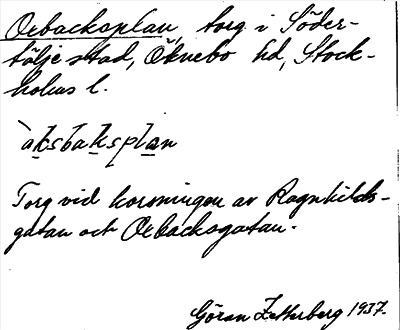 Oxbacksplan, torg i Söder-
tälje stad, Öknebo hd, Stock-
holms l.
`aksbaksplan
Torg vid korsningen av Ragnhilds-
gatan och Oxbacksgatan.
Göran Zetterberg 1937.